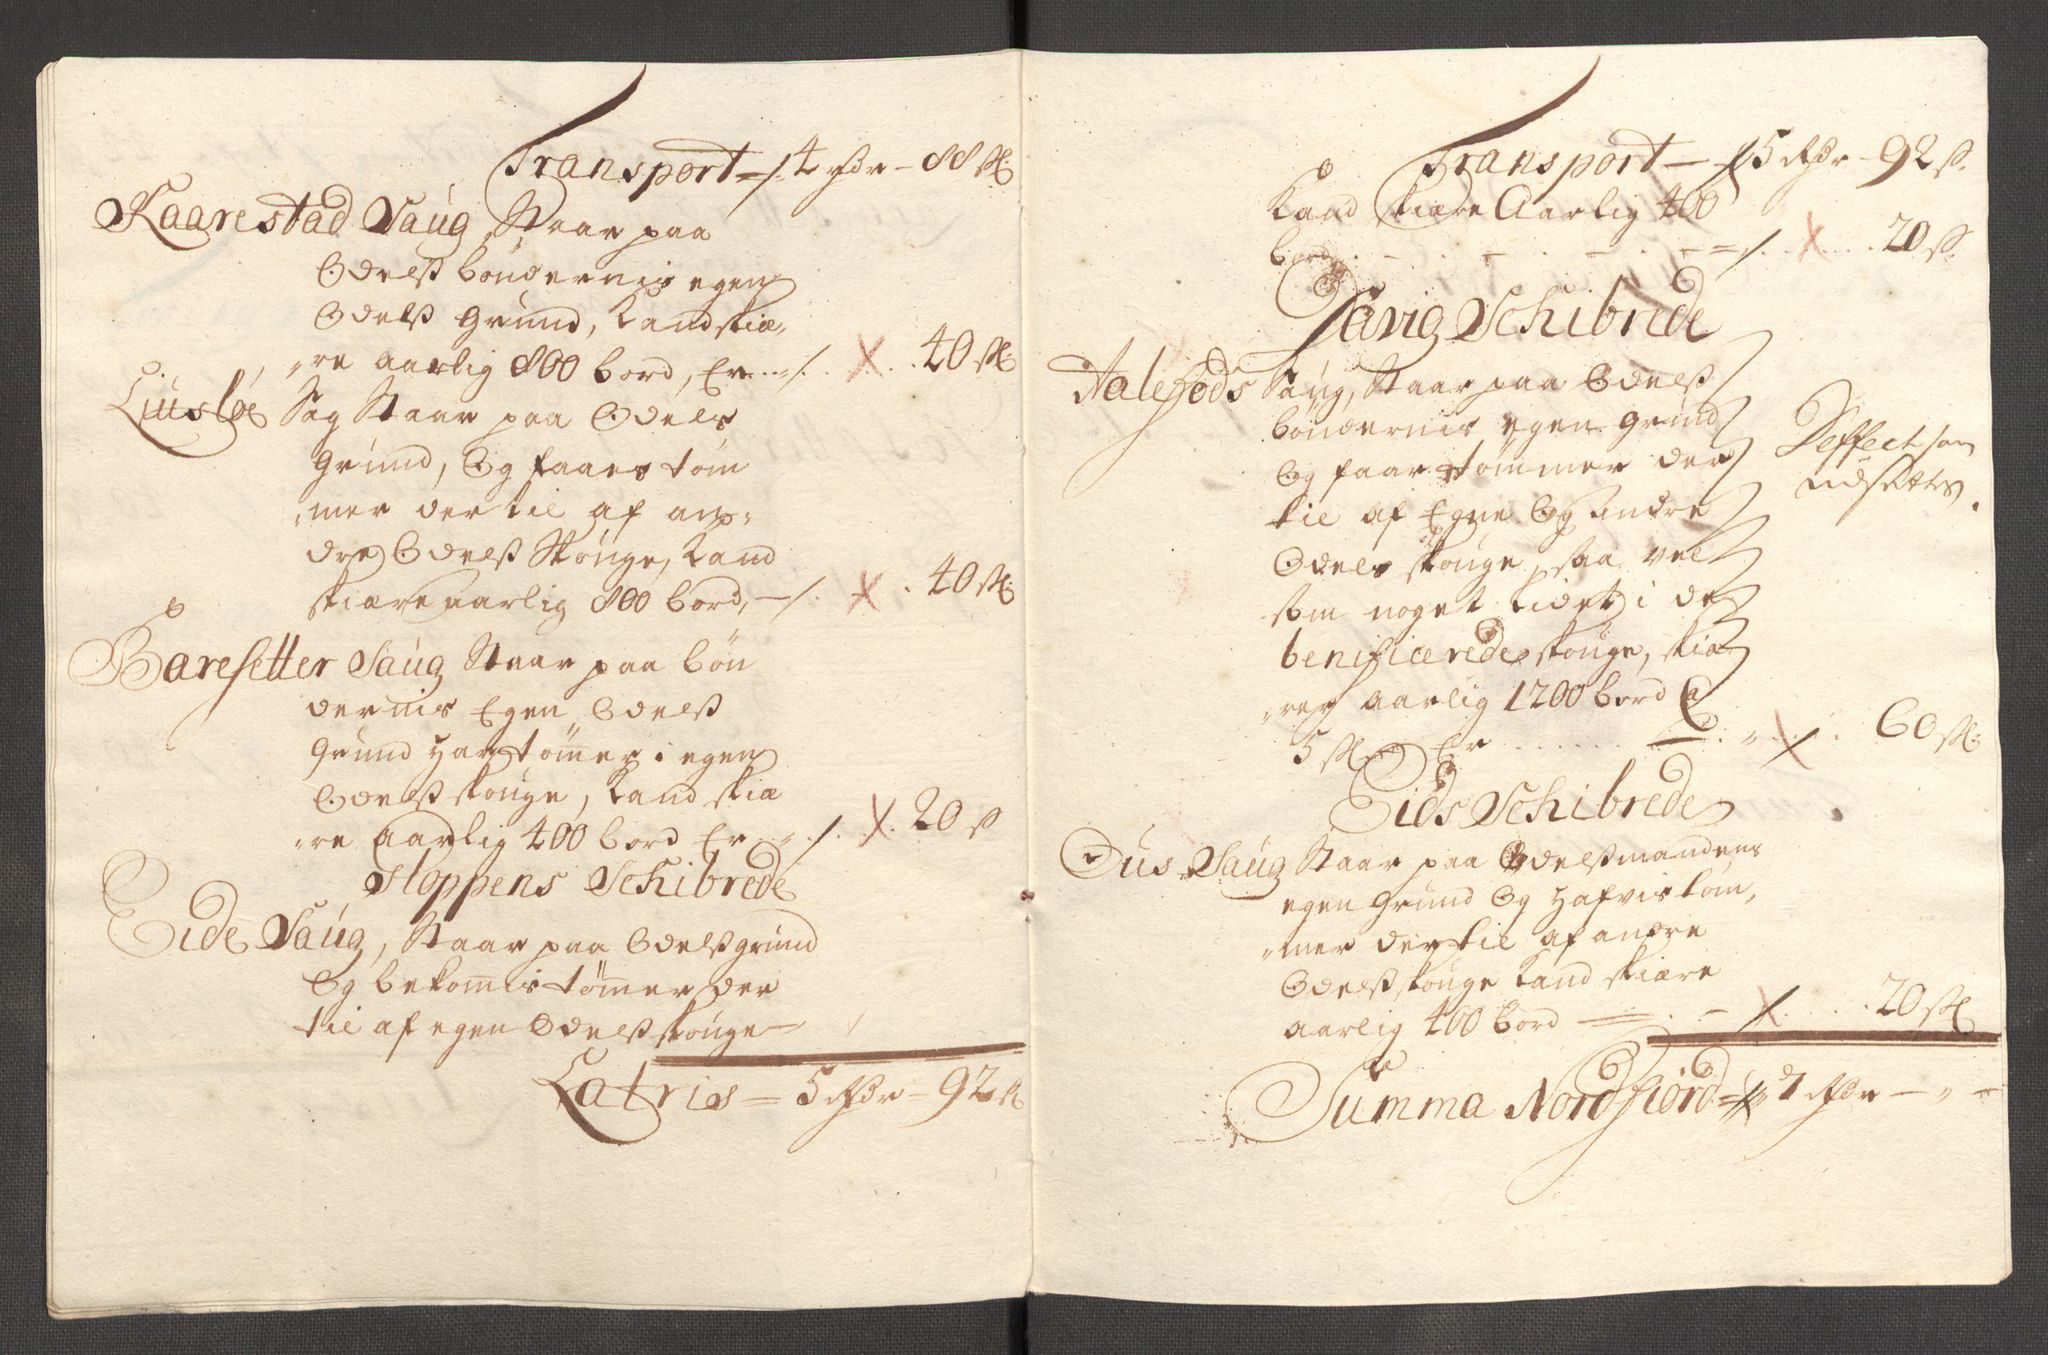 Transport - 4 rdr - 88 sk:
Kaarestad Saug Staar paa
Odelsbøndernis egen
Odels Grund, Kand skiæ-
re aarlig 800 bord, Er 40 sk:
Sag Staar paa Odels
Grund, Og faaes tøm
mer der til af an-
dre Odels Skouge, Kand
skiære aarlig 800 bord, 40 sk:
Baresetter Saug Staar paa bøn
dernis Egen Odels
Grund Har tømer i egen
Odels skouge, Kand skiæ
re aarlig 400 bord Er 20 s
Gloppens Schibrede
Eide Saug, Staar paa Odelsgrund
Og bekomis tømer der
til af egen Odels skouge
Latris = 5 rdr - 92 s
Transport - 5 rdr - 92 s.
Kand skiære Aarlig 400
bord 20 s.
Schibrede
Aalefods Saug, Staar paa Odels
bøndernis egen Grund
Og faar tømmer der
til af Egne Og andre
Odels skouge, saa vel
som noget lidet i de
benificerede skouge, skiæ
rer aarlig 1200 bord a
5 sk Er 60 sk:
Deffect som
udsættes.
Eids Schibrede
Dus Saug Staar paa Odelsmandens
egen Grund Og Hafvis tøm,
mer der til af andre
Odels skouge Kand skiære
aarlig 400 bord 20 sk
Summa Nordfiord 7 rdr - " -